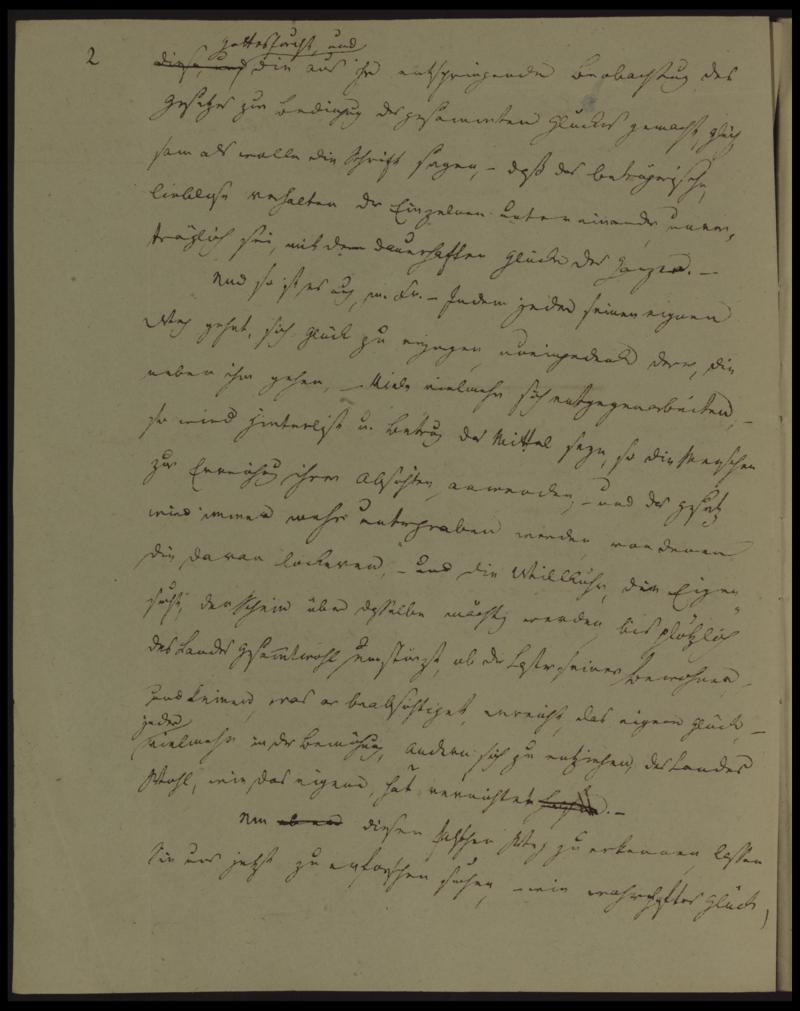 2
Gottesfurcht, und
diese, und die aus ihr entspringende Beobachtung des
Gesetzes zur Bedingung des gesammten Glückes gemacht, gleich
sam als wolle die Schrift sagen, – daß das betrügerische,
lieblose Verhalten der Einzelnen unter einander, unver,
träglich sei, mit dem dauerhaften Glücke des Ganzen. –
Und so ist es auch, m. Fr. – Indem jeder seinen eignen
Weg gehet, sich Glück zu erjagen, uneingedenk derer, die
neben ihm gehen, – Viele vielmehr sich entgegenarbeiten, –
so wird Hinterlist u. Betrug das Mittel seyn, so die Menschen
zur Erreichung ihrer Absichten, anwenden, – und das Gesetz
wird immer mehr untergraben werden, von denen
die daran lockeren, – und die Willkühr, die Eigen
sucht, der Schein über dasselbe mächtig werden, bis plötzlich
des Landes Gesammtwohl umstürzt, ob der Laster seiner Bewohner, –
und keiner, was er beabsichtiget, erreicht, das eigene Glück, –
jeder
vielmehr in der Bemühung, Andern sich zu entziehen, des Landes
Wohl, wie das eigene, hat vernichtet. –
Um eben diesen falschen Weg zu erkennen, lassen
Sie uns jetzt zu erforschen suchen, wie wahrhaftes Glück,